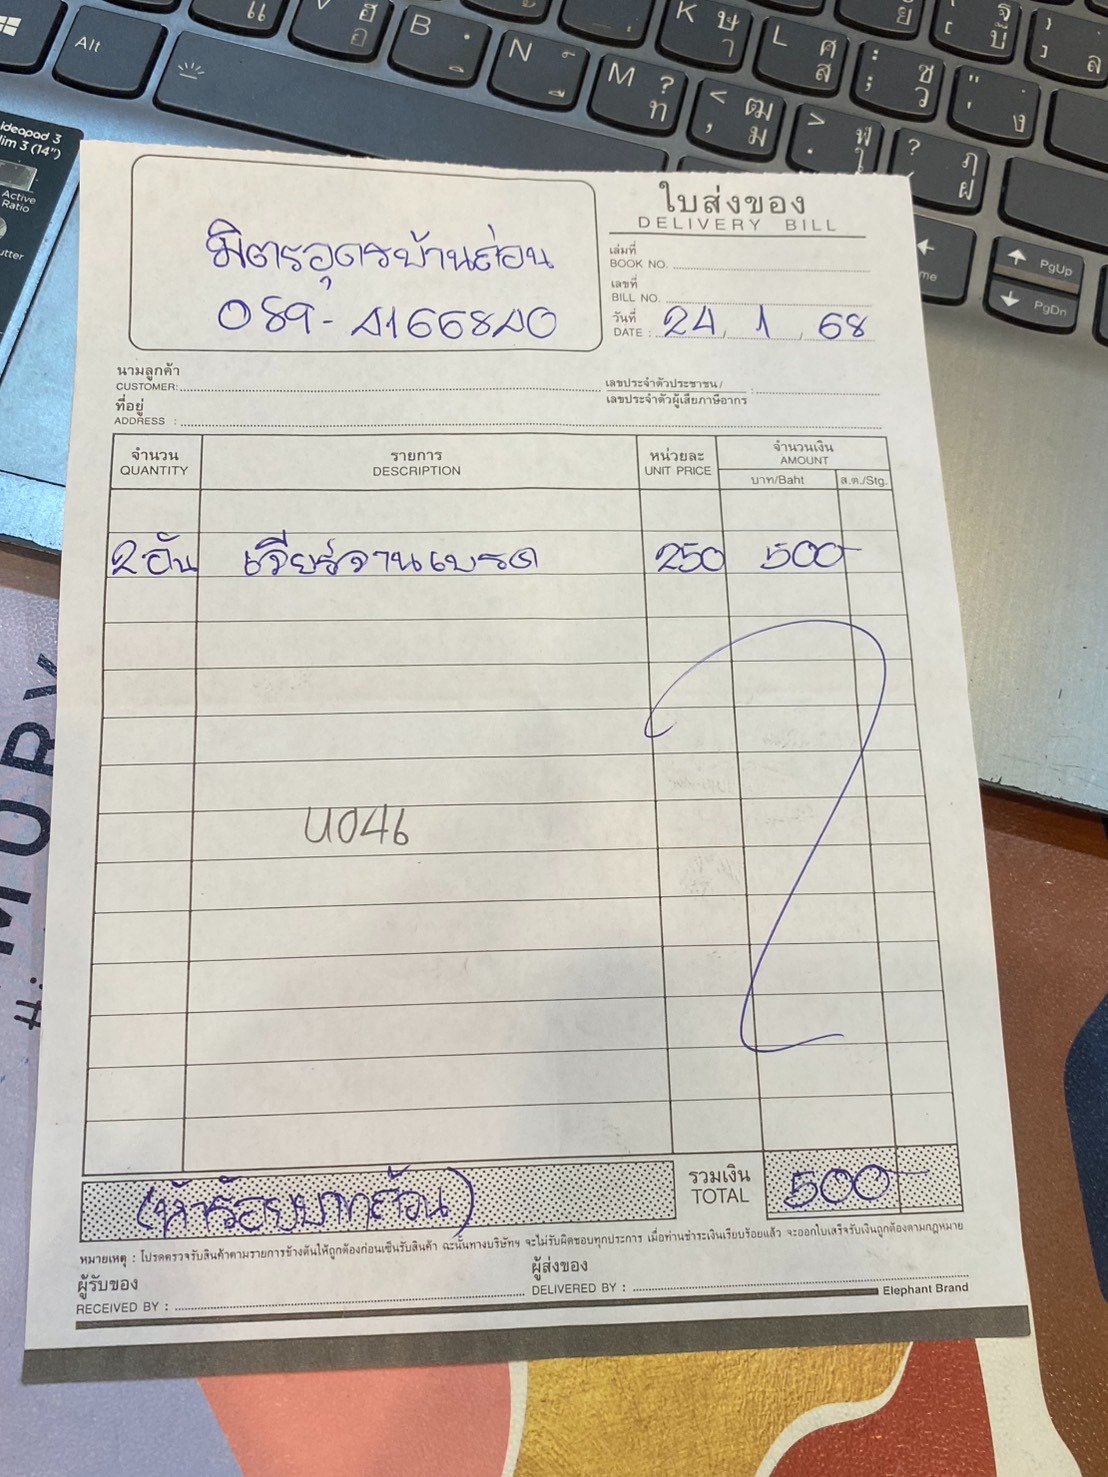 Alt
B
N
M
K
L
PgUp
PgDn
ideapad 3
lim 3 (14")
Active
Ratio
มิตรอุดรบ้านถ่อน
089-4166840
ใบส่งของ
DELIVERY BILL
เล่มที่
BOOK NO.
เลขที่
BILL NO.
วันที่
DATE : 24, 1, 68
นามลูกค้า
CUSTOMER:
เลขประจำตัวประชาชน/
เลขประจำตัวผู้เสียภาษีอากร :
ที่อยู่
ADDRESS :
จำนวน รายการ หน่วยละ จำนวนเงิน
QUANTITY DESCRIPTION UNIT PRICE AMOUNT
บาท/Baht ส.ต./Stg.
2 อัน เจียร์จานเบรค 250 500-
U046
(ห้าร้อยบาทถ้วน)
รวมเงิน
TOTAL 500-
หมายเหตุ : โปรดตรวจรับสินค้าตามรายการข้างต้นให้ถูกต้องก่อนเซ็นรับสินค้า ฉะนั้นทางบริษัทฯ จะไม่รับผิดชอบทุกประการ เมื่อท่านชำระเงินเรียบร้อยแล้ว จะออกใบเสร็จรับเงินถูกต้องตามกฎหมาย
ผู้รับของ
RECEIVED BY :
ผู้ส่งของ
DELIVERED BY :
Elephant Brand